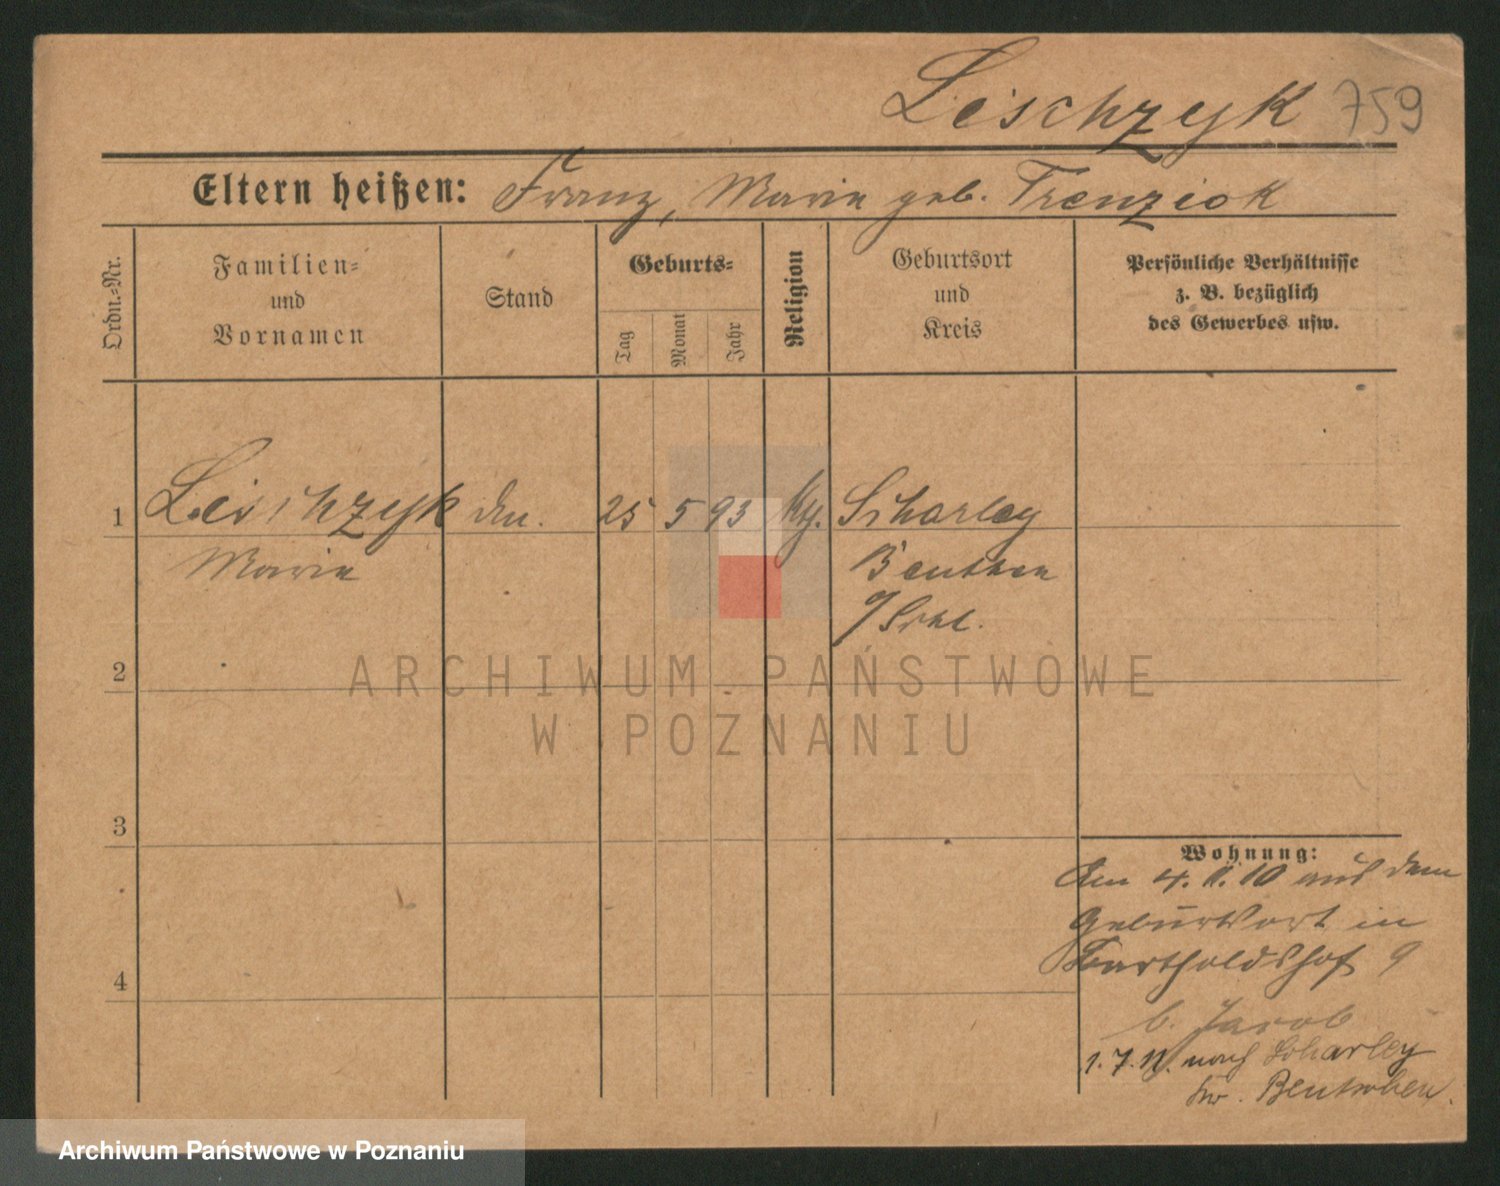 Leschzyk 759
Eltern heißen: Franz, Marie geb. Trenziok
Ordn.-Nr.
Familien-
und
Vornamen
Stand
Geburts-
Tag
Monat
Jahr
Religion
Geburtsort
und
Kreis
Persönliche Verhältnisse
z. B. bezüglich
des Gewerbes usw.
1 Leischzyk 25 5 93 Scharley
Marie Beuthen
2
3
4
Wohnung:
Am 4. 10 aus dem
Geburtsort in
Bartholdshof 9
b. Jacob
1. 7. 11. nach Scharley
Kr. Beuthen.
ARCHIWUM PAŃSTWOWE
W POZNANIU
Archiwum Państwowe w Poznaniu